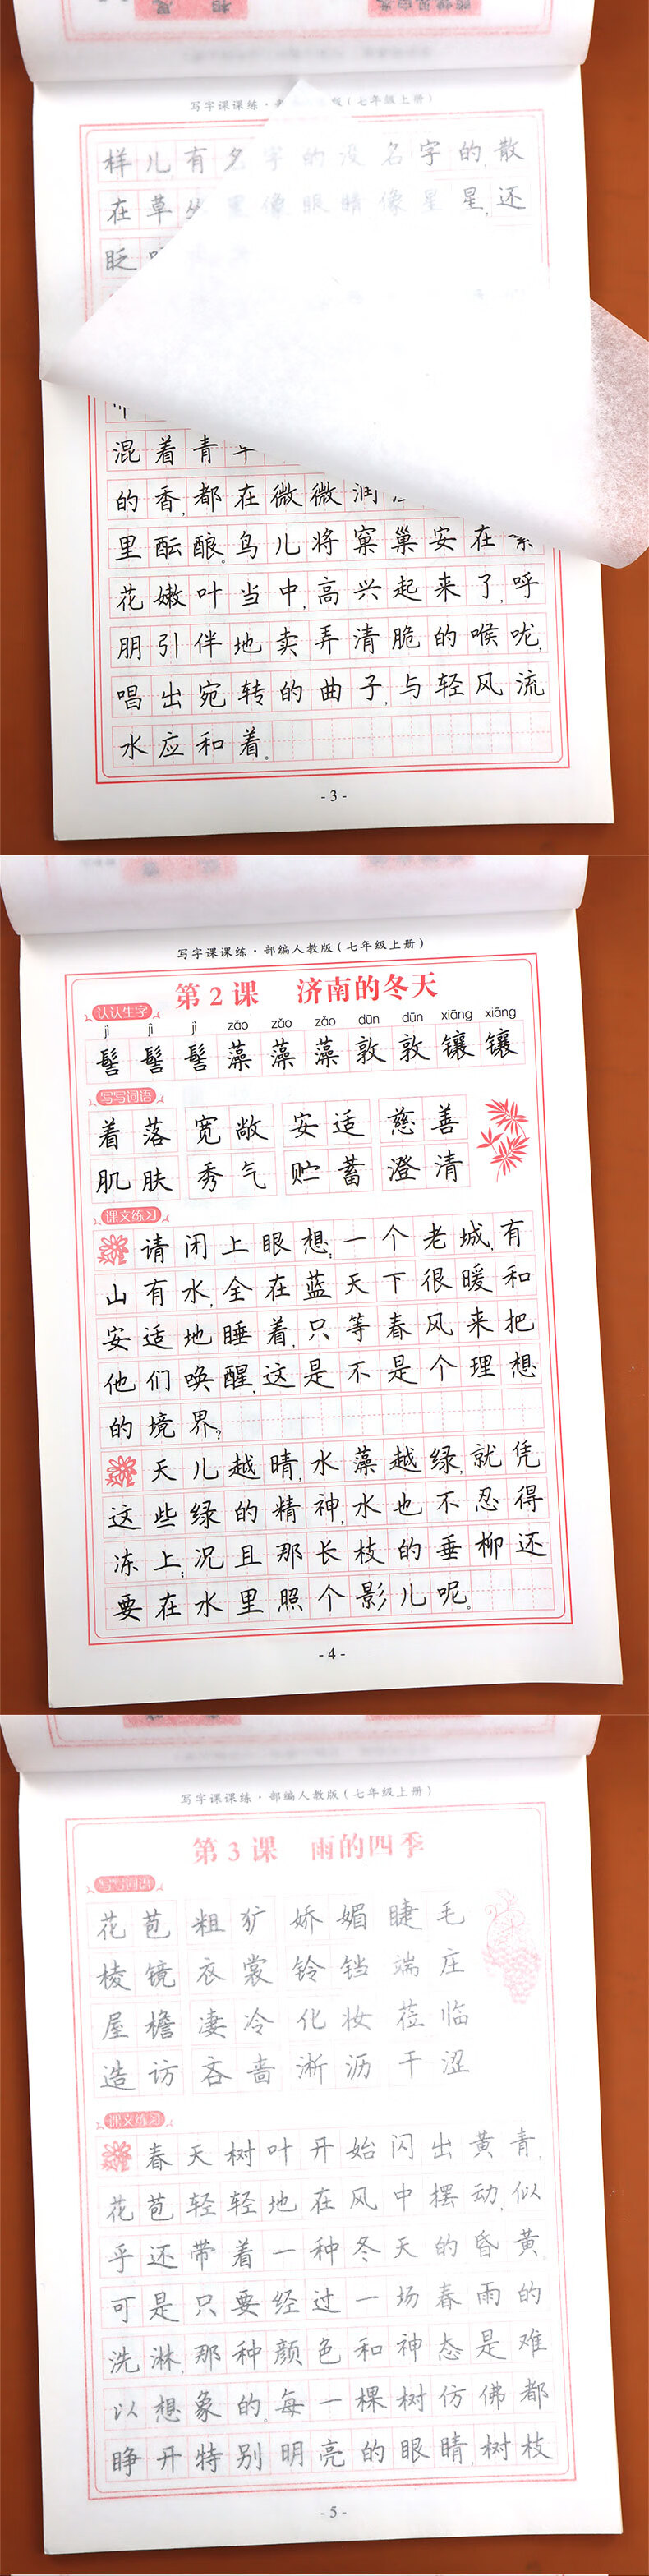 写字课课练·部编人教版(七年级上册)
样儿,有名字的,没名字的,散
在草丛里像眼睛像星星,还
眨
混着青草
的香,都在微微润
里酝酿。鸟儿将窠巢安在繁
花嫩叶当中,高兴起来了,呼
朋引伴地卖弄清脆的喉咙,
唱出宛转的曲子,与轻风流
水应和着。
- 3 -
写字课课练·部编人教版(七年级上册)
第2课 济南的冬天
认认生字
jì jì jì zǎo zǎo zǎo dūn dūn xiāng xiāng
髻髻髻藻藻藻敦敦镶镶
写写词语
着落 宽敞 安适 慈善
肌肤 秀气 贮蓄 澄清
课文练习
请闭上眼想:一个老城,有
山有水,全在蓝天下很暖和
安适地睡着,只等春风来把
他们唤醒,这是不是个理想
的境界?
天儿越晴,水藻越绿,就凭
这些绿的精神,水也不忍得
冻上;况且那长枝的垂柳还
要在水里照个影儿呢。
- 4 -
写字课课练·部编人教版(七年级上册)
第3课 雨的四季
写写词语
花苞 粗犷 娇媚 睫毛
棱镜 衣裳 铃铛 端庄
屋檐 凄冷 化妆 莅临
造访 吝啬 淅沥 干涩
课文练习
春天树叶开始闪出黄青,
花苞轻轻地在风中摆动,似
乎还带着一种冬天的昏黄。
可是只要经过一场春雨的
洗淋,那种颜色和神态是难
以想象的。每一棵树仿佛都
睁开特别明亮的眼睛,树枝
- 5 -